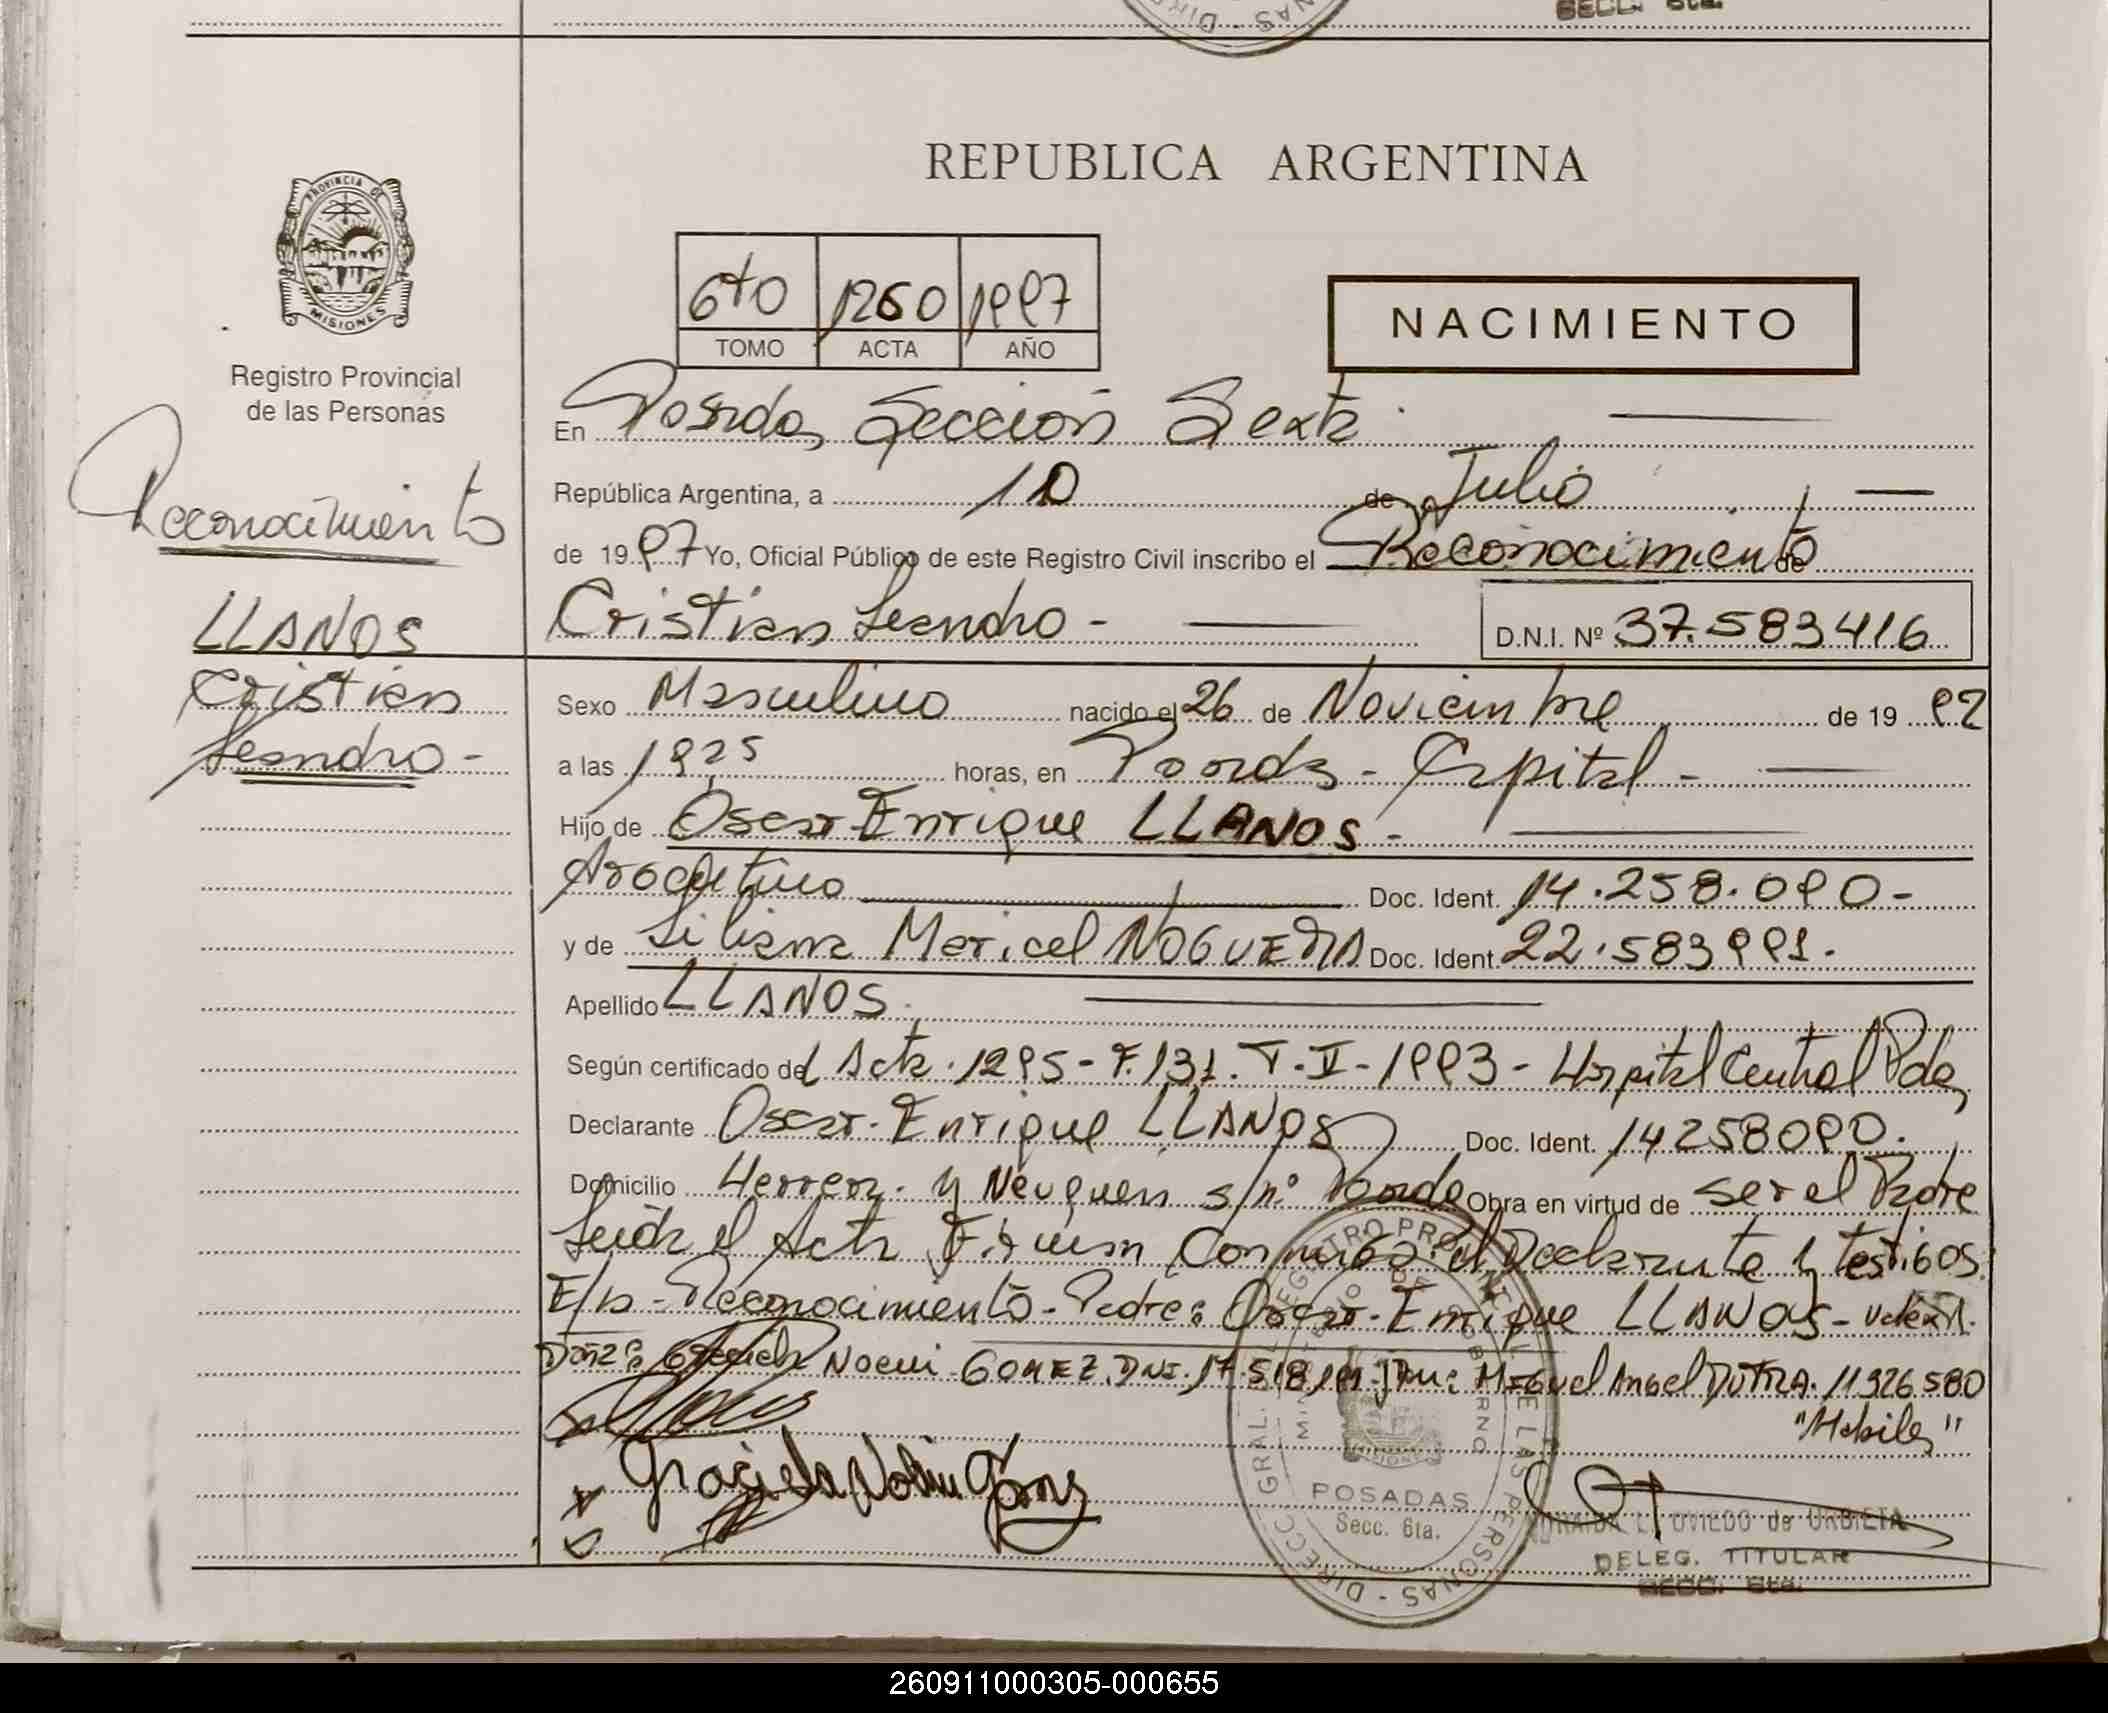 SECC. 6ta.
REPUBLICA ARGENTINA
PROVINCIA DE
MISIONES
Registro Provincial
de las Personas
6to 1260 1997
TOMO ACTA AÑO
NACIMIENTO
En Posadas Sección Sexta.
República Argentina, a 10 de Julio
de 1997 Yo, Oficial Público de este Registro Civil inscribo el Reconocimiento de
Cristian Leandro - D.N.I. Nº 37.583416
Reconocimiento
LLANOS
Cristian
Leandro -
Sexo Masculino nacido el 26 de Noviembre de 1992
a las 1925 horas, en Posadas - Capital -
Hijo de Oscar Enrique LLANOS -
Argentino Doc. Ident. 14.258.090-
y de Liliana Maricel NOGUERA Doc. Ident. 22.583991.
Apellido LLANOS.
Según certificado del Acta. 1295 - F.131. T-II-1993 - Hospital Central Pdas
Declarante Oscar-Enrique LLANOS Doc. Ident. 14258090.
Domicilio Herrera y Neuquén s/nº Posadas Obra en virtud de ser el Padre
Leída el Acta Firman Conmigo: el Declarante y testigos
E/ Reconocimiento - Padre: Oscar-Enrique LLANOS - Vale
Doña: Graciela Noemi GOMEZ. DNI. 17.518 Miguel Angel DUTRA. 11926580
"Hábiles"
Graciela Noemi Gomez
DIRECC. GRAL. REGISTRO PROVINCIAL DE LAS PERSONAS
MINISTERIO DE GOBIERNO
POSADAS
Secc. 6ta.
L. OVIEDO de URBIETA
DELEG. TITULAR
SECC. 6ta.
260911000305-000655